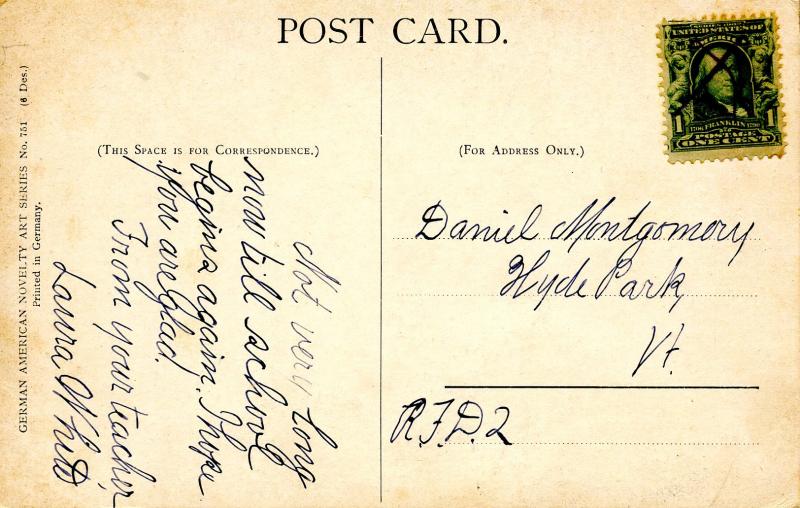 POST CARD.
SERIES 1902
UNITED STATES OF
AMERICA
1706 FRANKLIN 1790
1 1
POSTAGE
ONE CENT
(THIS SPACE IS FOR CORRESPONDENCE.)
(FOR ADDRESS ONLY.)
Not very long
now till school
begins again. I hope
you are glad.
From your teacher,
Laura White
Daniel Montgomery
Hyde Park
Vt.
R.F.D. 2
GERMAN AMERICAN NOVELTY ART SERIES No. 751 (6 Des.)
Printed in Germany.